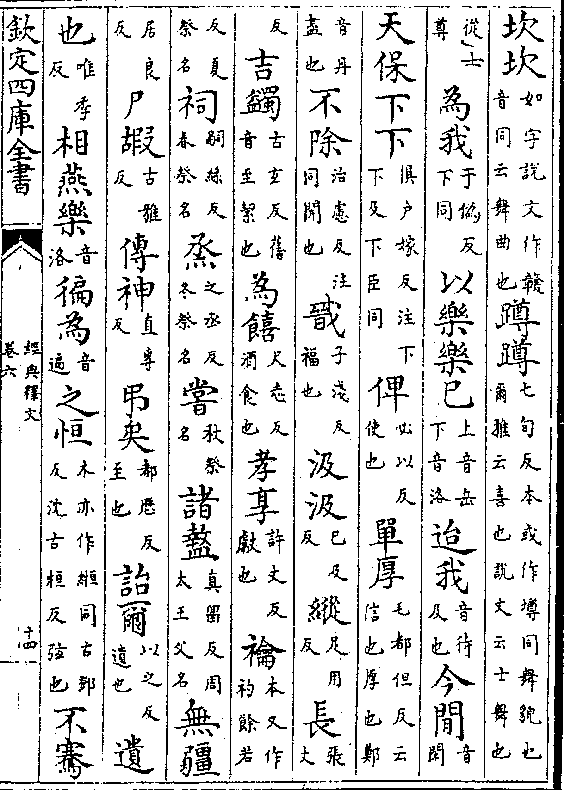 坎坎如字說文作竷音同云舞曲也蹲蹲七旬反本或作墫同舞貌也爾雅云喜也說文云士舞也
從士尊為我于偽反下同以樂樂已上音岳下音洛迨我音待及也今閒音閑
天保下下俱户嫁反注下下及下臣同俾必以反使也單厚毛都但反云信也厚也鄭
音丹盡也不除治慮反注同開也戩子淺反福也汲汲已及反縱足用反長張丈
反吉蠲古玄反舊音圭絜也為饎尺志反酒食也孝享許丈反獻也禴本又作礿餘若
反夏祭名祠嗣絲反春祭名烝之丞反冬祭名嘗秋祭名諸盩直留反周太王父名無疆
居良反尸嘏古雅反傳神直專反弔矣都歷反至也詒爾以之反遺也遺
也唯季反相燕樂音洛徧為音遍之恒本亦作縆同古鄧反沈古桓反弦也不騫
欽定四庫全書
經典釋文
卷六
十四